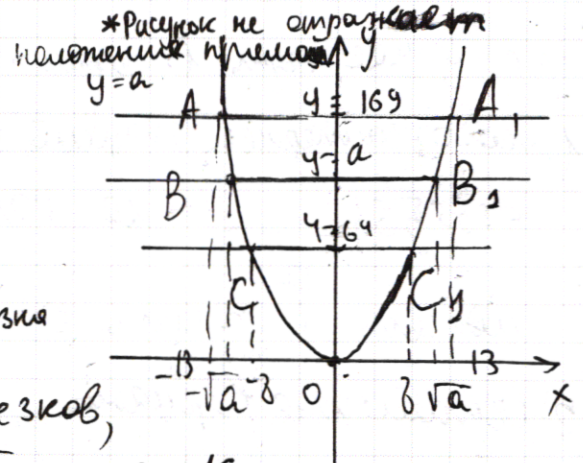 *Рисунок не отражает
положения прямой
y=a
y
A
y = 169
A1
y=a
B
B1
y=64
C
C1
зня
-13
-√a
-8
0
8
√a
13
x
езков,